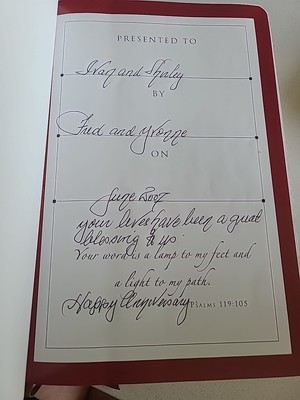 PRESENTED TO
Ivan and Shirley
BY
Fred and Yvonne
ON
June 2007
your lives have been a great
blessing to us
Your word is a lamp to my feet and
a light to my path.
Happy Anniversary PSALMS 119:105